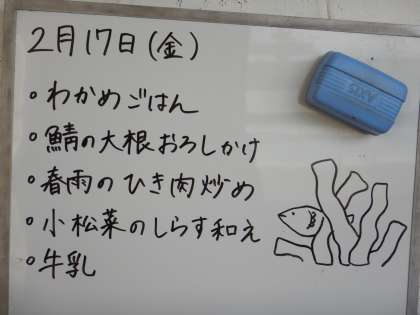 2月17日(金)
・わかめごはん
・鯖の大根おろしかけ
・春雨のひき肉炒め
・小松菜のしらす和え
・牛乳
AXIS